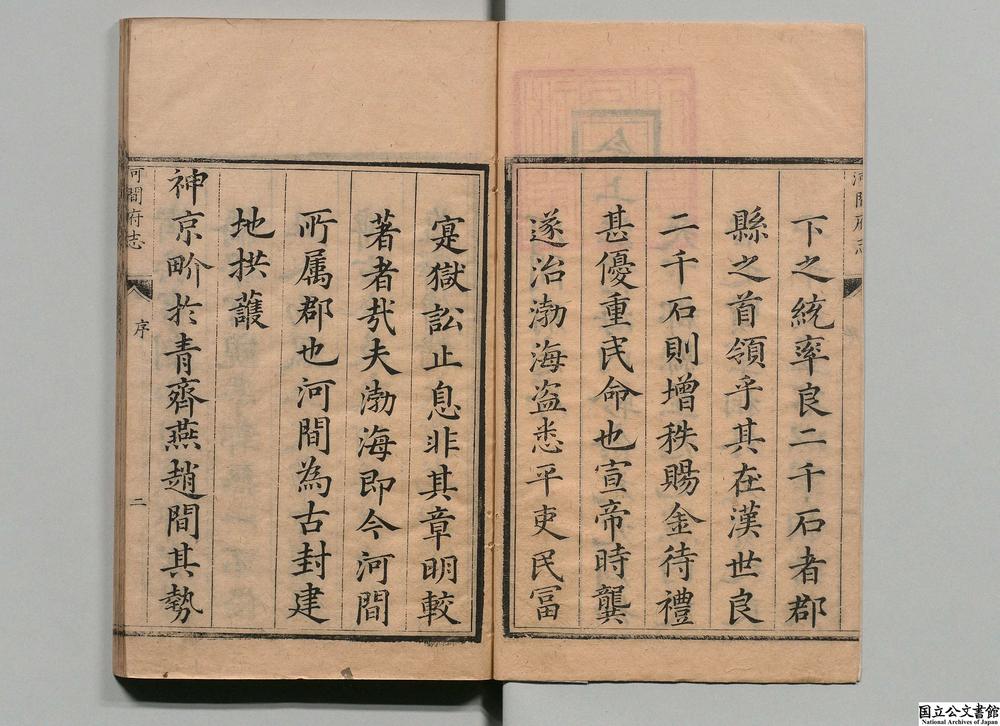 下之統率良二千石者郡
縣之首領乎其在漢世良
二千石則增秩賜金待禮
甚優重民命也宣帝時龔
遂治渤海盗悉平吏民冨
寔獄訟止息非其章明較
著者㢤夫渤海即今河間
所属郡也河間為古封建
地拱䕶
神京畍於青齊燕趙間其勢
河間府志
序
二
河間府志
国立公文書館
National Archives of Japan